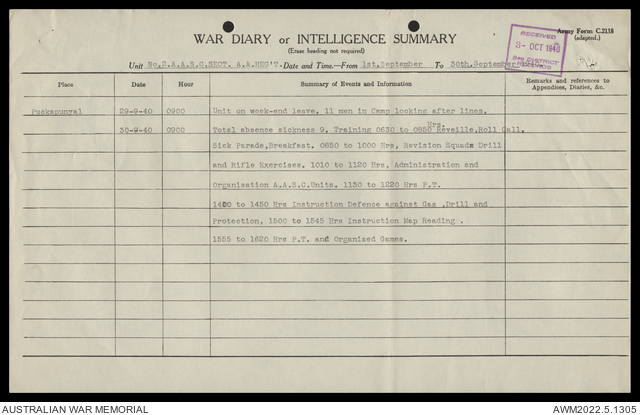 Army Form C.2118
WAR DIARY or INTELLIGENCE SUMMARY (adapted.)
(Erase heading not required)
RECEIVED
3- OCT 1940
DISTRICT
RECORDS
Unit No.2.A.A.S.C.SECT. A.A.REG'T. Date and Time.—From 1st.September To 30th.September
Place Date Hour Summary of Events and Information Remarks and references to Appendices, Diaries, &c.
Puckapunyal 29-9-40 0900 Unit on week-end leave. 11 men in Camp looking after lines.
Hrs.
30-9-40 0900 Total absence sickness 9. Training 0630 to 0850 Reveille,Roll Call.
Sick Parade,Breakfast. 0850 to 1000 Hrs, Revision Squad Drill
and Rifle Exercises. 1010 to 1120 Hrs, Administration and
Organisation A.A.S.C.Units. 1130 to 1220 Hrs P.T.
1400 to 1450 Hrs Instruction Defence against Gas ,Drill and
Protection, 1500 to 1545 Hrs Instruction Map Reading .
1555 to 1620 Hrs P.T. and Organized Games.
AUSTRALIAN WAR MEMORIAL AWM2022.5.1305